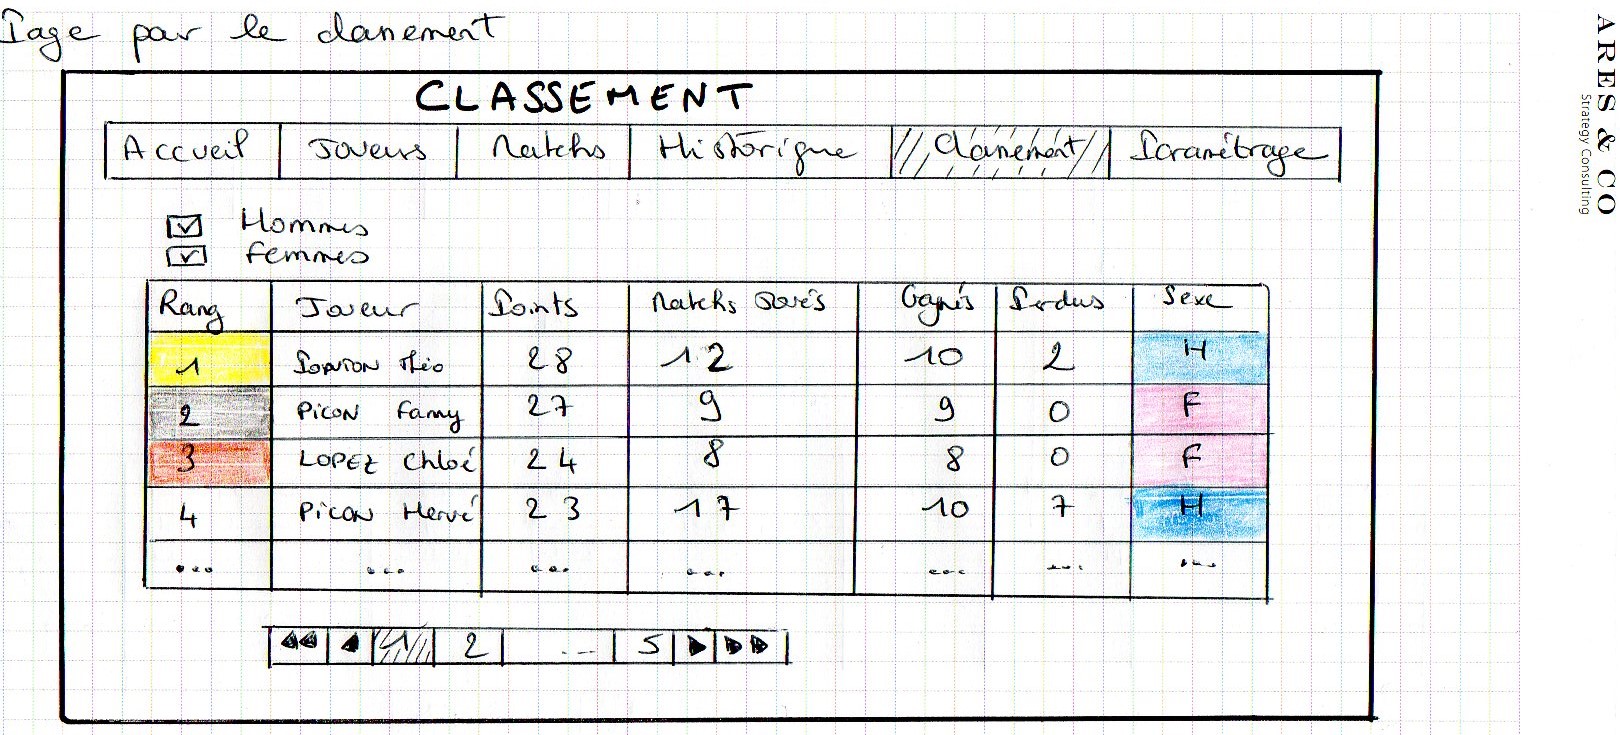 Page pour le classement
CLASSEMENT
Accueil Joueurs Matchs Historique Classement Paramétrage
Hommes
Femmes
Rang Joueur Points Matchs Joués Gagnés Perdus Sexe
1 Théo 28 12 10 2 H
2 PICON Fanny 27 9 9 0 F
3 LOPEZ Chloé 24 8 8 0 F
4 PICON Hervé 23 17 10 7 H
... ... ... ... ... ... ...
1 2 ... 5
ARES & CO
Strategy Consulting